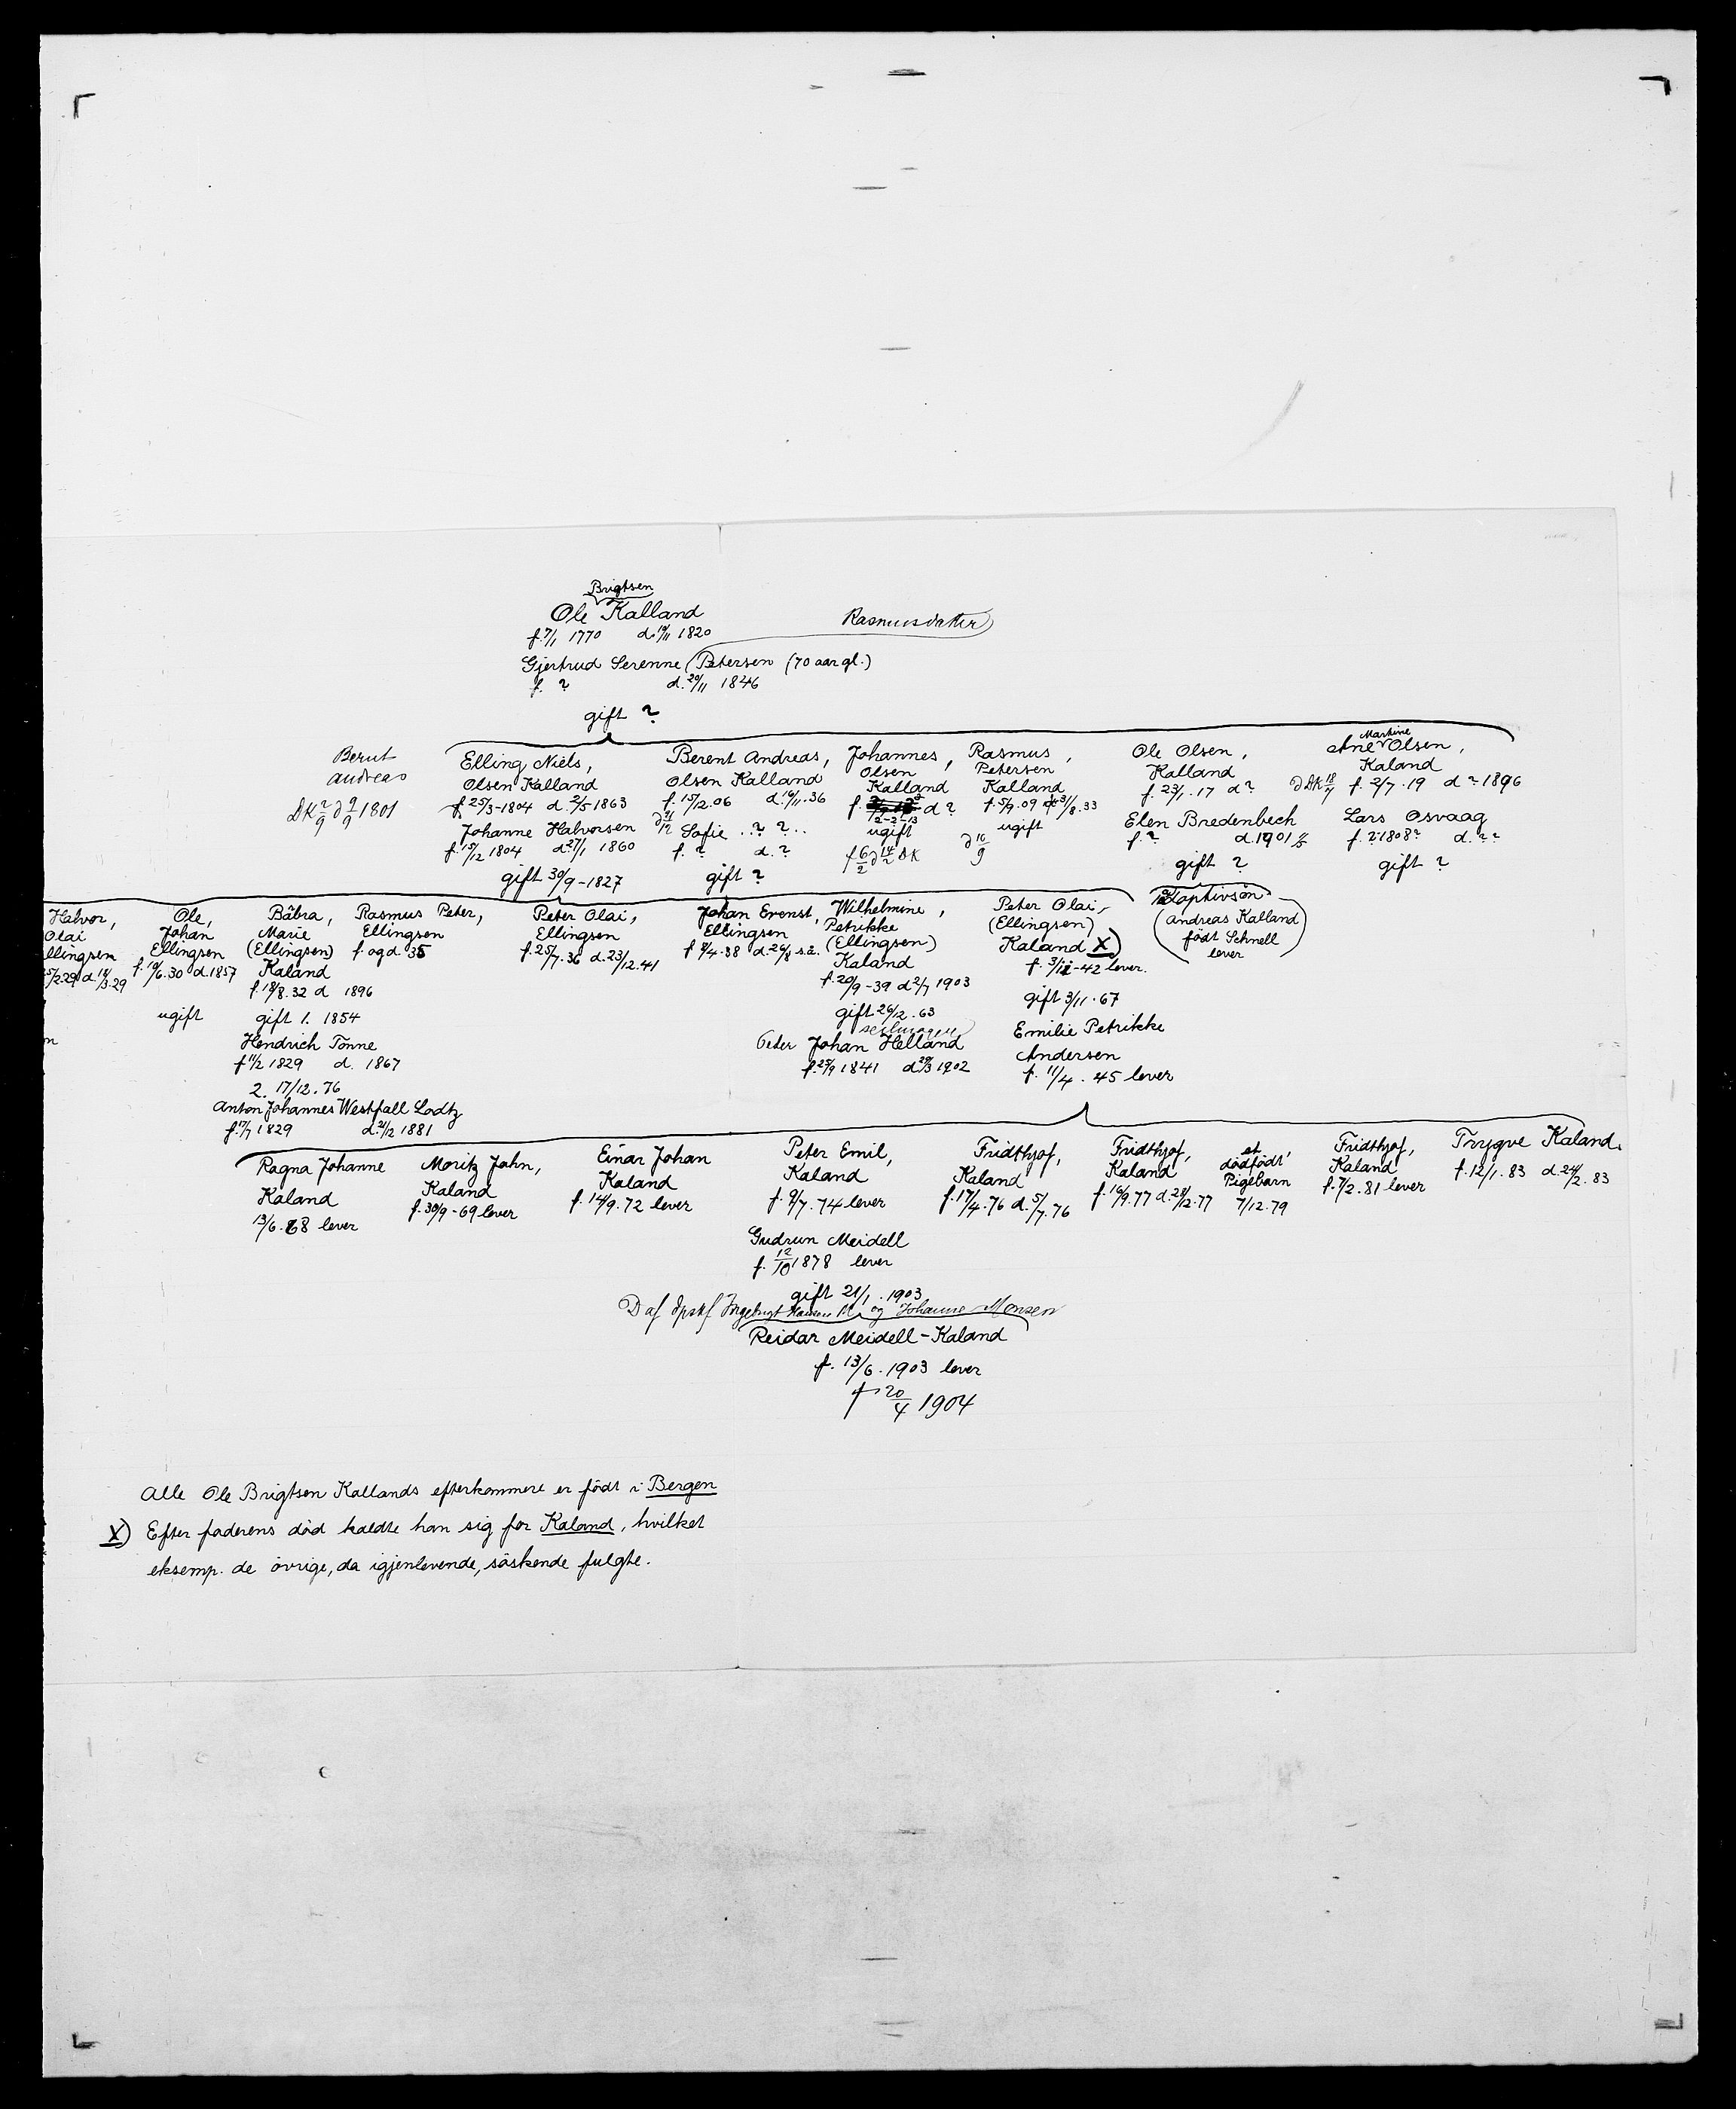 Brigtsen
Ole Kalland
f. 7/1 1770 d. 19/11 1820
Rasmusdatter
Gjertrud Serenne (Petersen (70 aar gl.)
f. ? d. 20/11 1846
gift ?
Berent
Andreas
DK 2/9 d 9/9 1801
Elling Niels,
Olsen Kalland
f. 25/3-1804 d. 2/5-1863
Johanne Halvorsen
f. 15/12 1804 d. 27/1 1860
gift 30/9-1827
Berent Andreas,
Olsen Kalland
f. 15/2.06 d. 16/11.36
Sofie ..? ?..
f. ? d. ?
gift ?
Johannes,
Olsen
Kalland
f. d ?
2-2-13
ugift
f 6/2 d 14/2 DK
Rasmus,
Petersen
Kalland
f. 5/9.09 d 3/8.33
ugift
d 10/9
Ole Olsen,
Kalland
f. 23/1.17 d ?
Elen Bredenbech
f. ? d. 1901
gift ?
Martine
Ane Olsen,
Kaland
d DK 18/7 f. 2/7.19 d ? 1896
Lars Osvaag
f. ? 1808? d. ??
gift ?
Halvor,
Olai
llingsen
5/2.29 d. 14/3.29
n
Ole,
Johan
Ellingsen
f. 19/6.30 d. 1857
ugift
Bäbra,
Marie
(Ellingsen)
Kaland
f. 18/8.32 d 1896
gift 1. 1854
Hendrich Tönne
f 11/2 1829 d. 1867
2. 17/12.76
Anton Johannes Westfall Lodtz
f. 17/7 1829 d. 21/2 1881
Rasmus Peter,
Ellingsen
f. og d. 35
Peter Olai,
Ellingsen
f. 25/7.36 d. 23/12.41
Johan Ervenst,
Ellingsen
f 8/4.38 d. 26/8 s.a.
Wilhelmine,
Petrikke
(Ellingsen)
Kaland
f. 20/9-39 d 2/7 1903
gift 26/12.63
seilmager
Peder Johan Helland
f. 25/9 1841 d. 29/3 1902
Peter Olai,
(Ellingsen)
Kaland X)
f. 3/12-42 lever.
gift 3/11.67
Emilie Petrikke
Andersen
f. 11/4.45 lever
Adoptivsön
(Andreas Kalland
födt Schnell
lever)
Ragna Johanne
Kaland
13/6.68 lever
Moritz Jahn,
Kaland
f. 30/9-69 lever
Einar Johan
Kaland
f. 14/9.72 lever
Peter Emil,
Kaland
f. 9/7.74 lever
Gudrun Meidell
f. 12/10 1878 lever
gift 21/1.1903
D af og Johanne Monsen
Reidar Meidell-Kaland
f. 13/6.1903 lever
† 20/4 1904
Fridthjof,
Kaland
f. 17/4.76 d. 5/7.76
Fridthjof,
Kaland
f. 16/9.77 d. 28/12.77
et
dödfödt
Pigebarn
7/12.79
Fridthjof,
Kaland
f. 7/2.81 lever
Trygve Kaland.
f. 12/1.83 d. 24/2.83
Alle Ole Brigtsen Kallands efterkommere er födt i Bergen
X) Efter faderens död kaldte han sig for Kaland, hvilket
eksemp. de övrige, da igjenlevende, söskende fulgte.